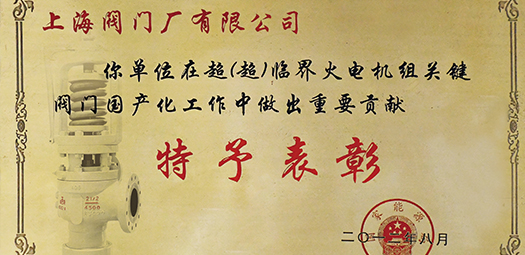 上海阀门厂有限公司
你单位在超(超)临界火电机组关键
阀门国产化工作中做出重要贡献
特予表彰
二〇一二年八月